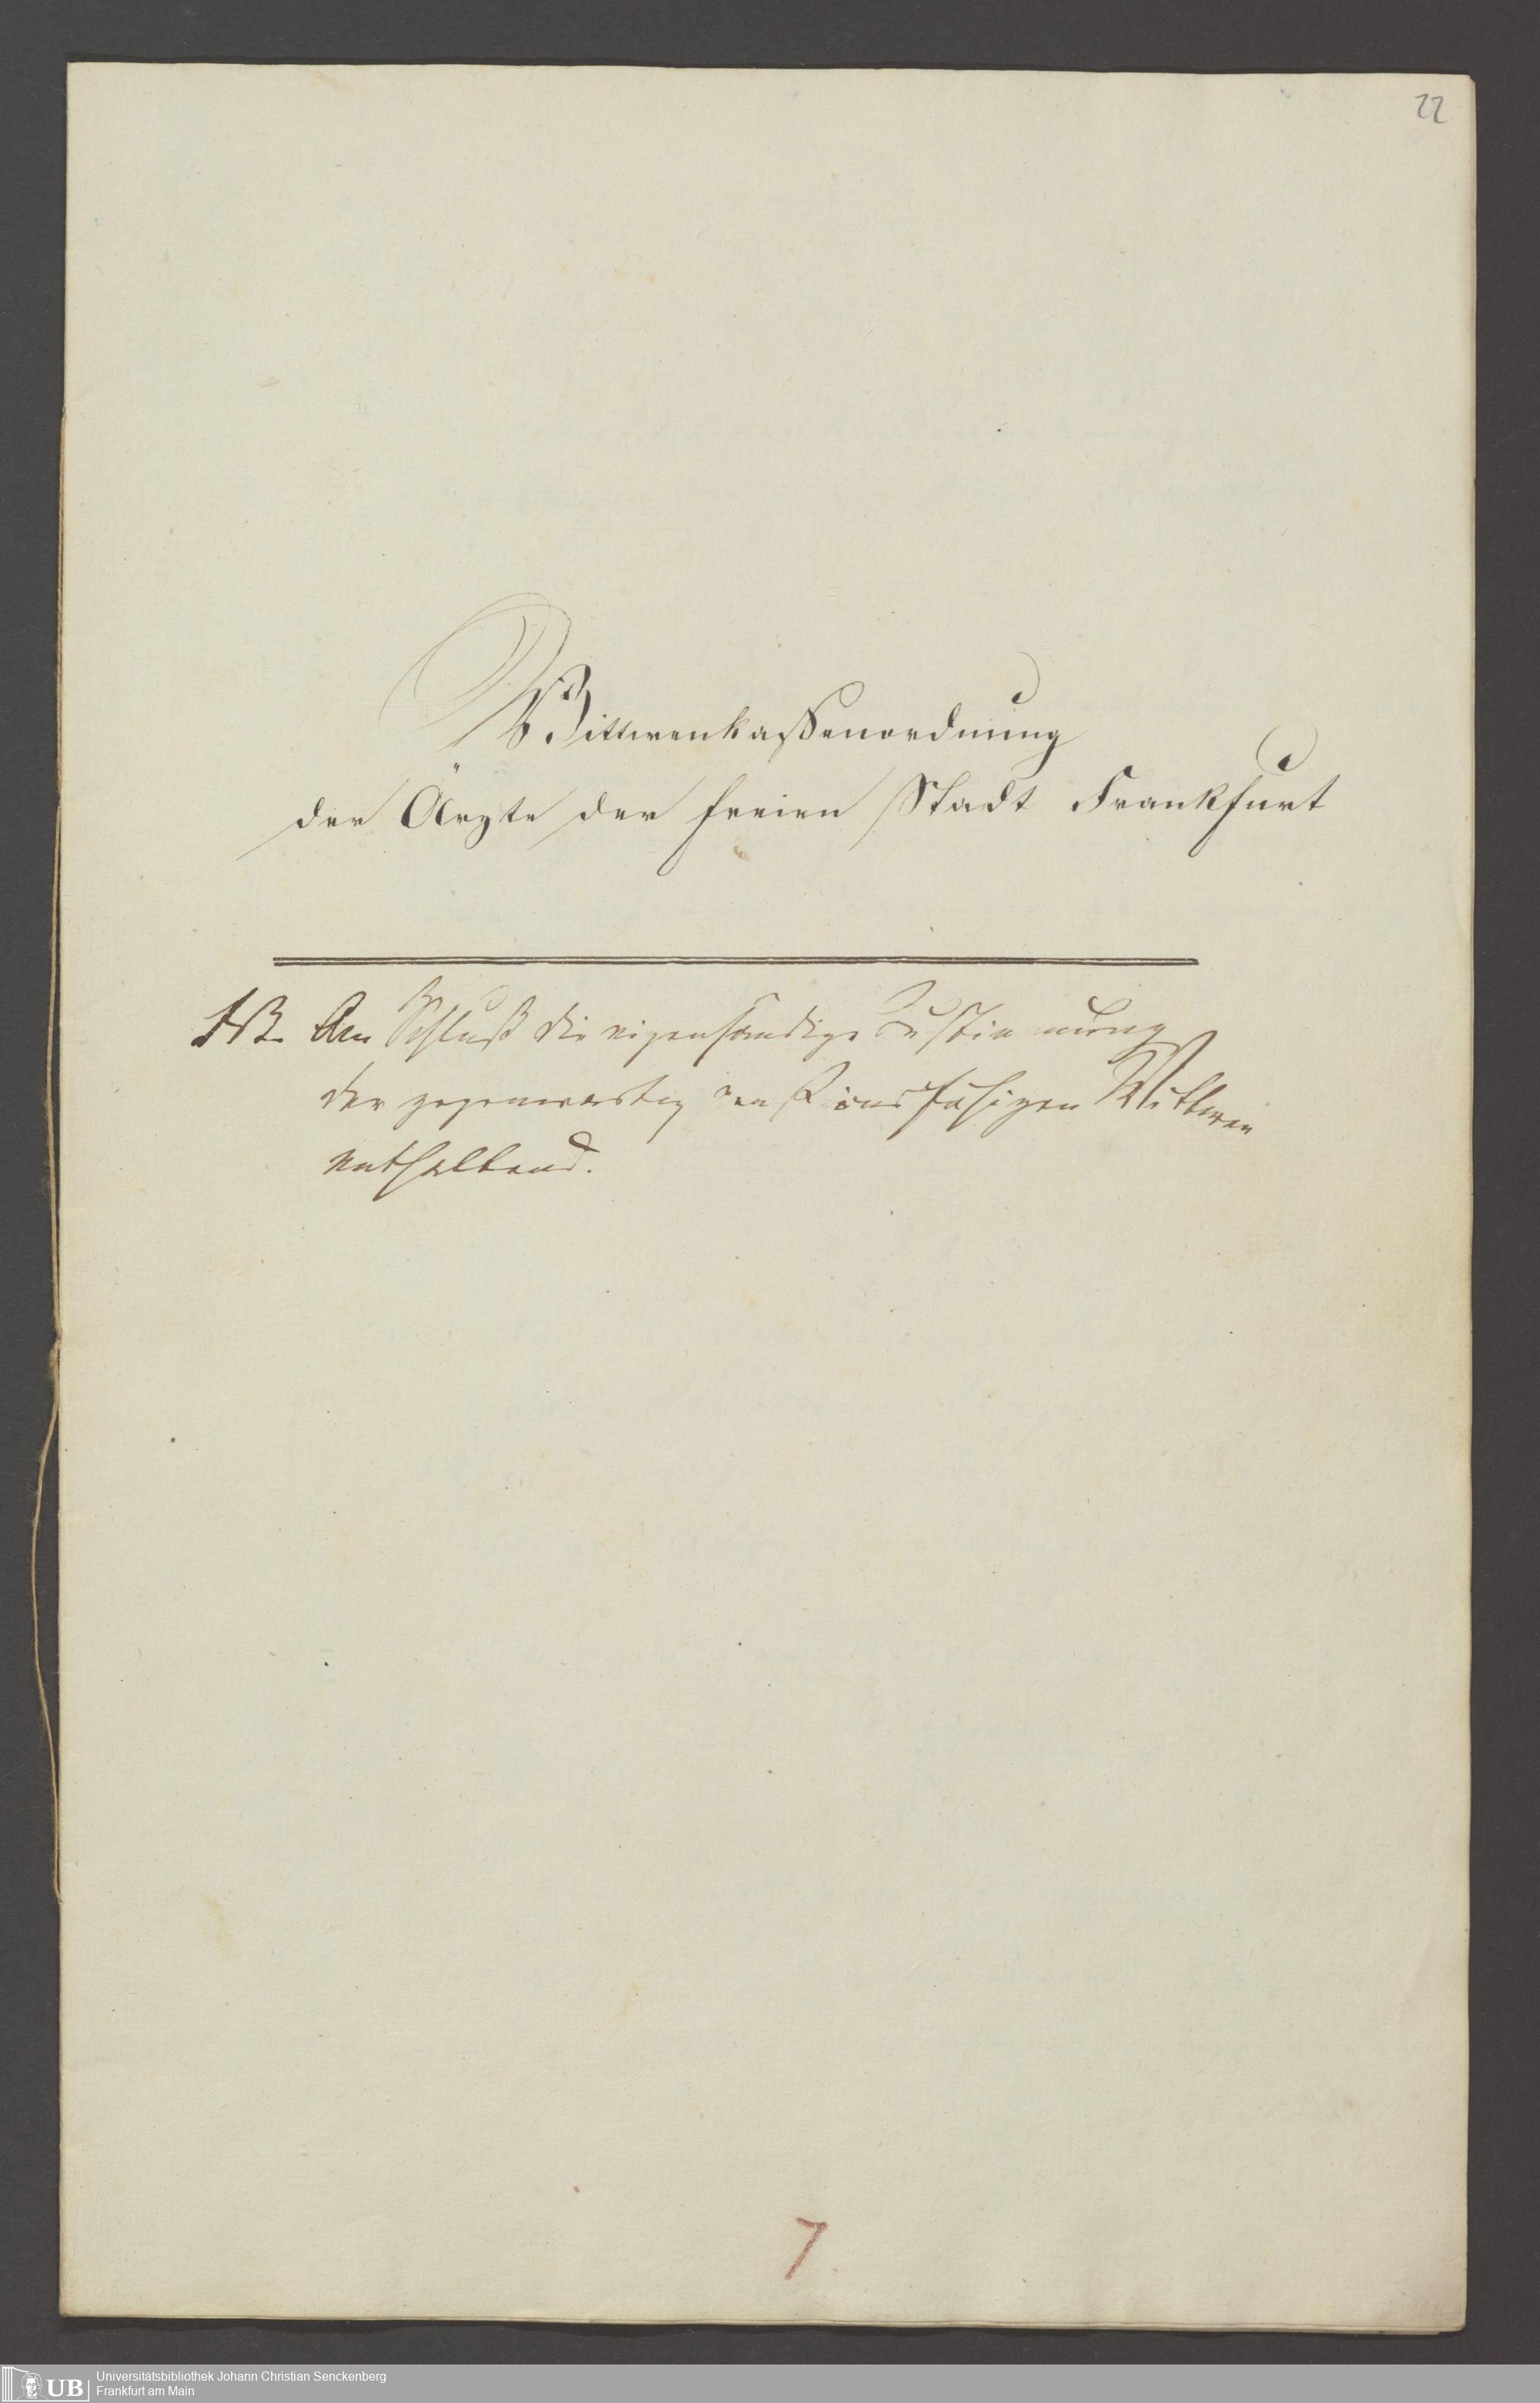 22
Wittwenkaßenordnung
der Ärzte der freien Stadt Frankfurt
NB. Am Schluß die eigenhändige Zustimmung
der gegenwärtig pensionsfähigen Wittwen
enthaltend.
7
UB
Universitätsbibliothek Johann Christian Senckenberg
Frankfurt am Main